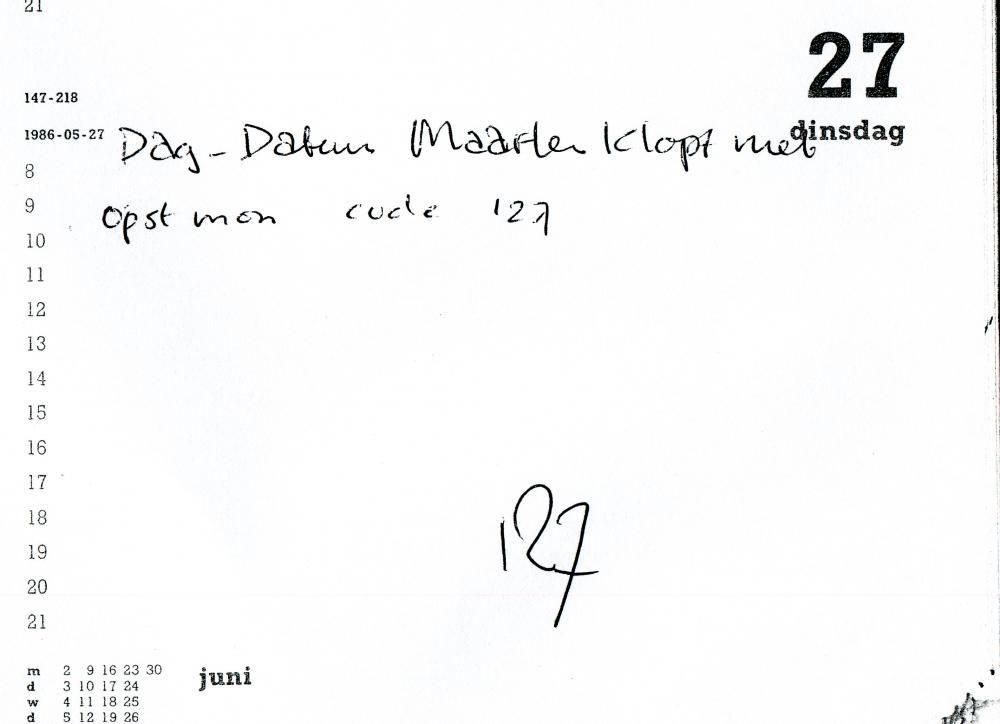 21
27
147-218
dinsdag
1986-05-27 Dag - Datum Maarten klopt met
8
9 opst mon code 127
10
11
12
13
14
15
16
17
18
19
20
21
127
m 2 9 16 23 30 juni
d 3 10 17 24
w 4 11 18 25
d 5 12 19 26